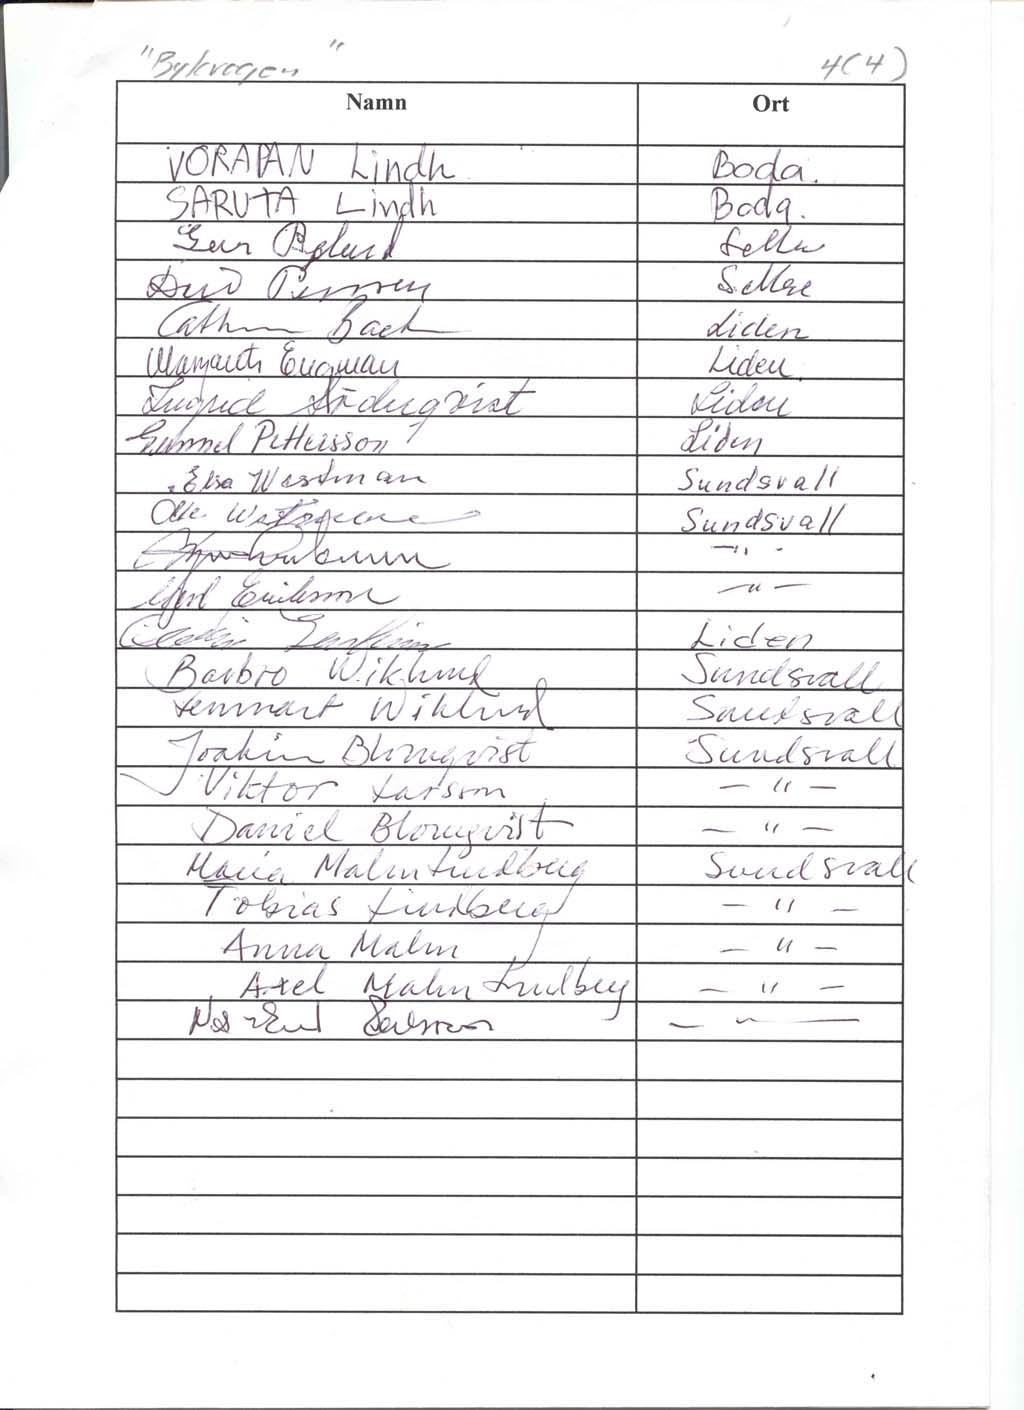 "Bykrogen" 4(4)
Namn Ort
VORAPAN Lindh Boda.
SARUTA Lindh Boda.
Byland
Persson
Bäck Liden
Margareth Engman Liden
Ingrid Söderqvist Liden
Gunnel Pettersson Liden
Elsa Westman Sundsvall
Olle Sundsvall
— " —
Eriksson — " —
Liden
Barbro Wiklund Sundsvall
Lennart Wiklund Sundsvall
Joakim Blomqvist Sundsvall
Viktor Larsson — " —
Daniel Blomqvist — " —
Maria Malm Lindberg Sundsvall
Tobias Lindberg — " —
Anna Malm — " —
Axel Malm Lindberg — " —
— " —